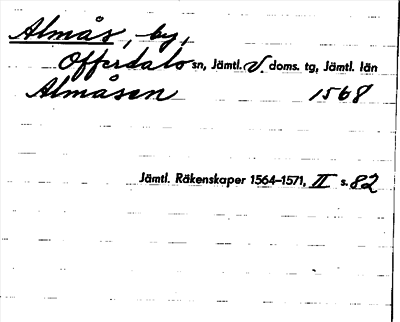 Almås, by,
Offerdals sn, Jämtl. V. doms. tg, Jämtl. län
Almåsen 1568
Jämtl. Räkenskaper 1564–1571, II s. 82